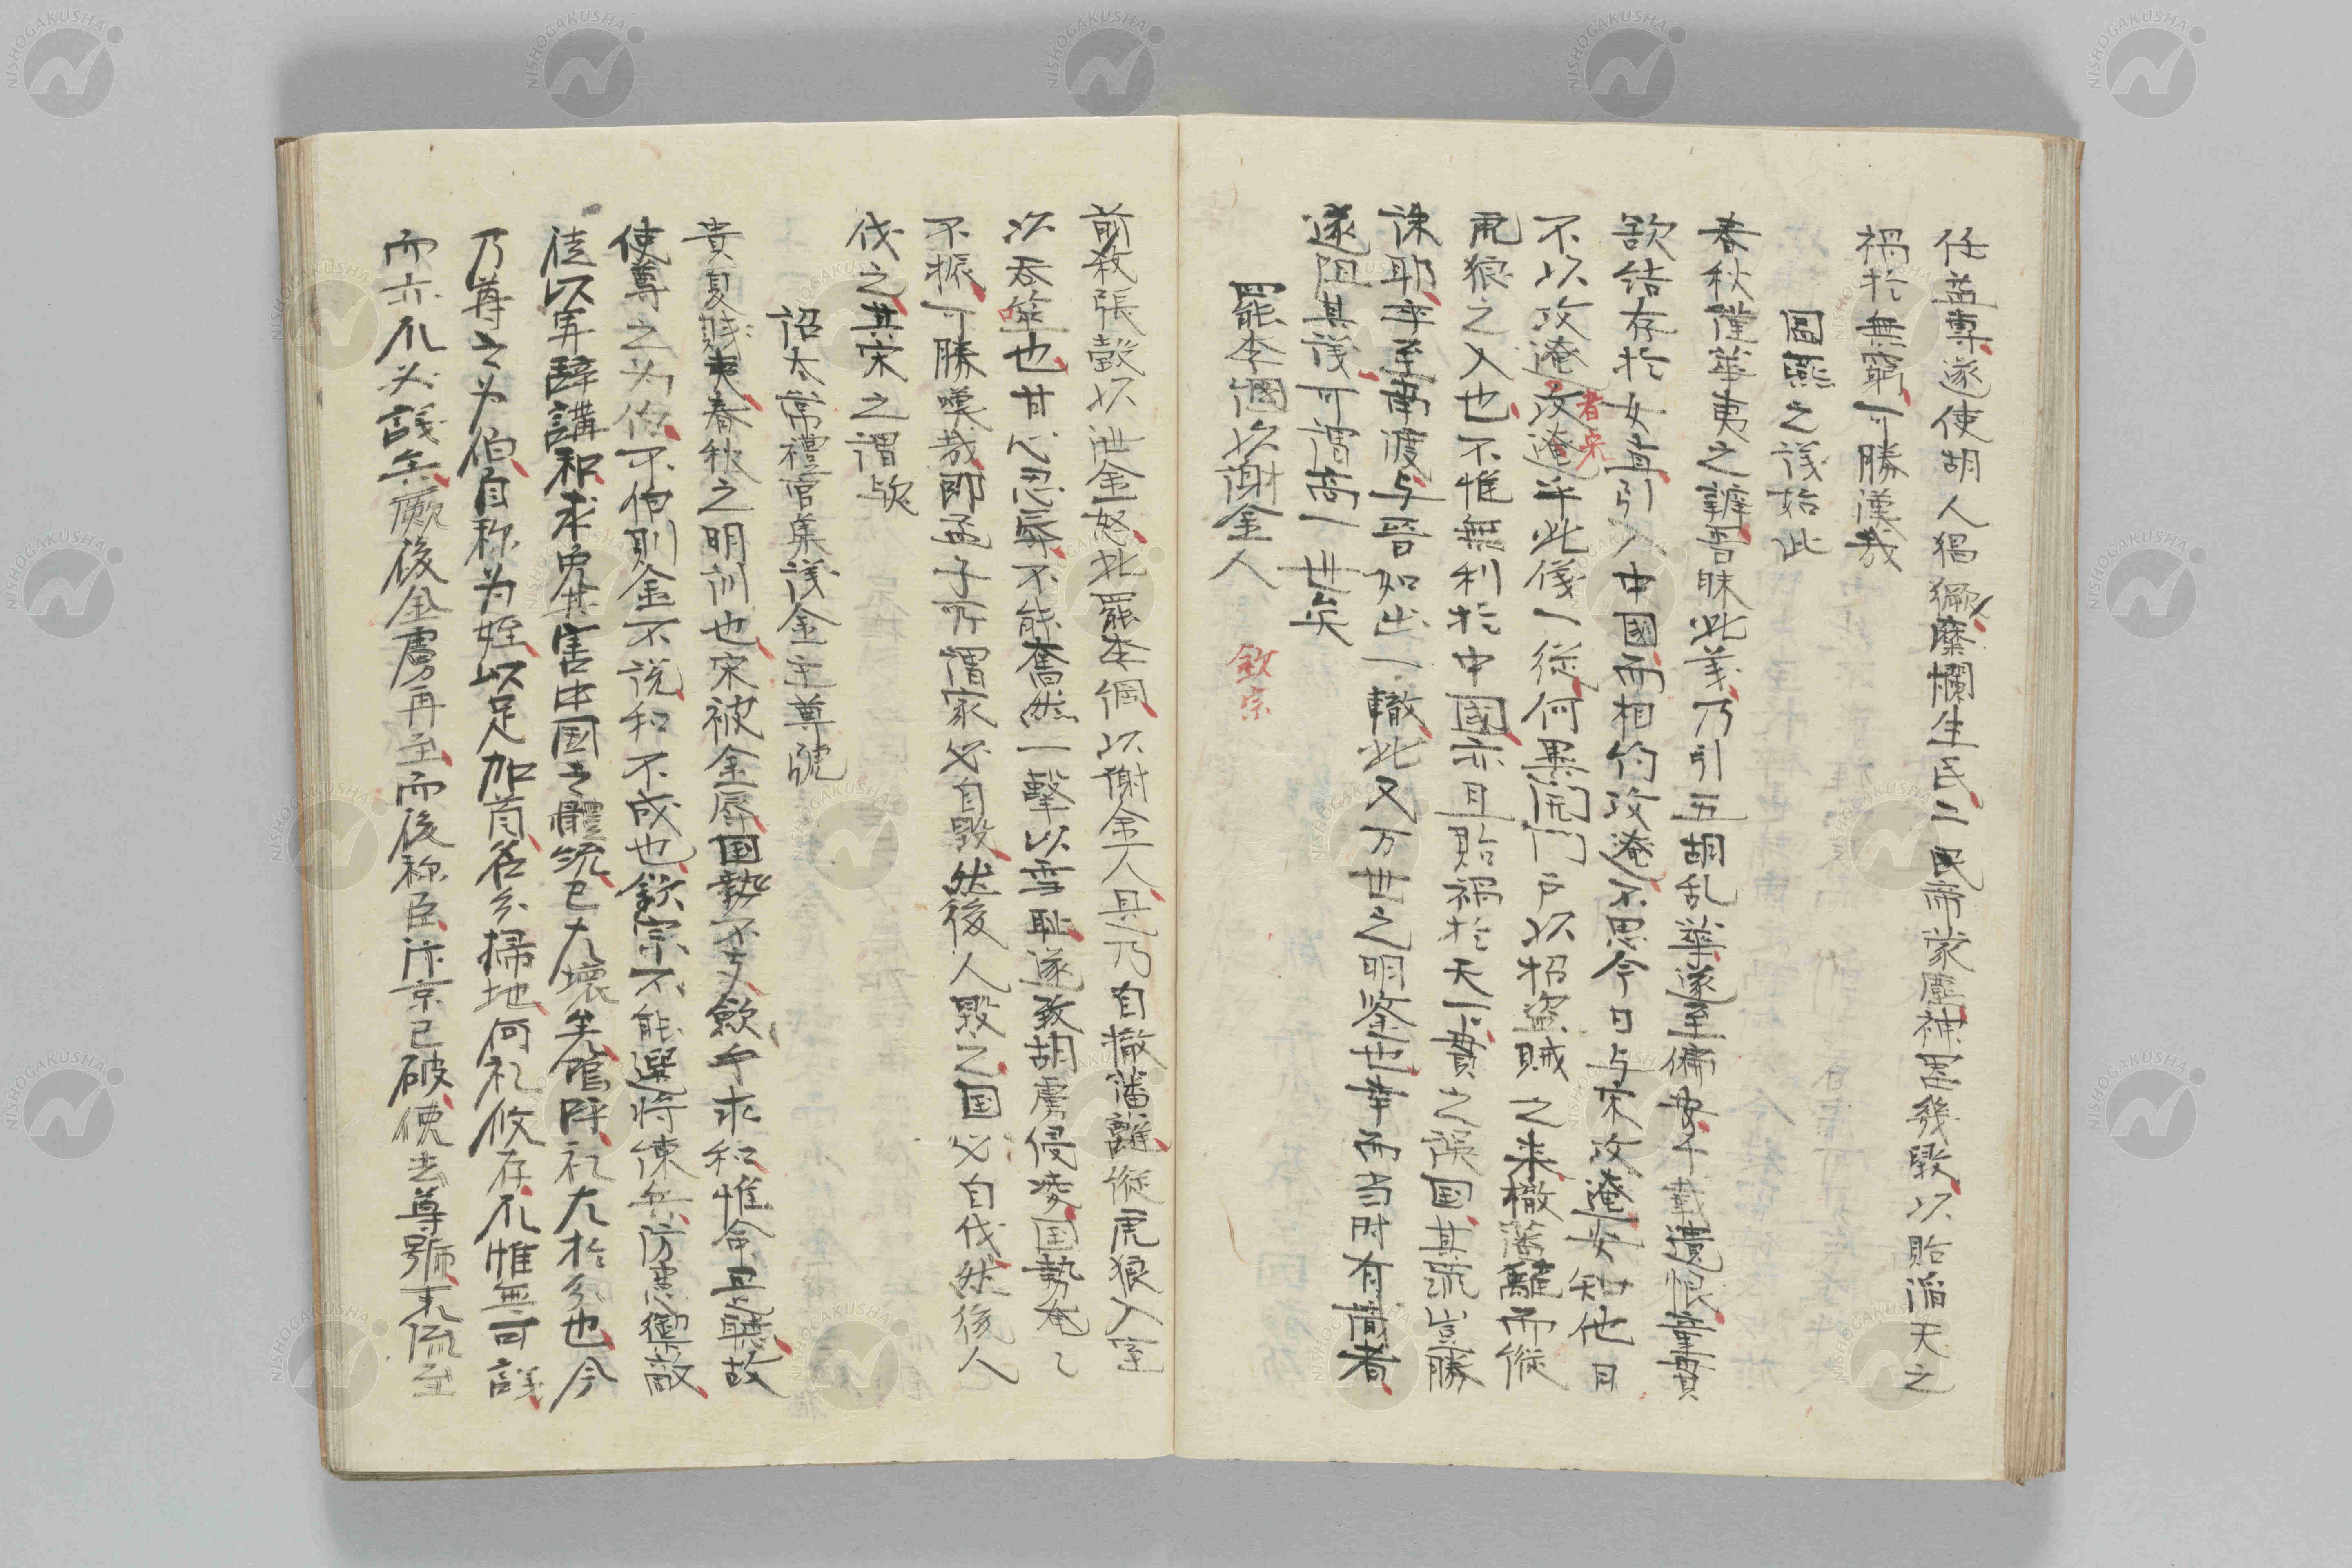 任益專遂使胡人猖獗糜爛生民二帝蒙塵神器幾毀以貽滔天之
禍於無窮可勝漢哉
圖燕之議始此
春秋謹華夷之辨晋昧此義乃引五胡乱華遂至偏安千載遺恨童貫
欲結存於女真引入中國而相約攻遼不思今日与宋攻遼安知他日
不以攻遼攻遼者宋乎此儀一從何異開門戶以招盜賊之来撤藩離而縱
虎狼之入也不惟無利於中國亦且貽禍於天下貫之誤国其罪豈勝
誅耶卒至南渡与晋如出一轍此又万世之明鉴也幸而当时有識者
遂阻其議可謂高一世矣
罷李綱以謝金人 欽宗
前殺張瑴以泄金怒北罷李綱以謝金人且乃自撤藩離縱虎狼入室
以吞噬也甘心忍辱不能奮然一擊以雪耻遂致胡虜侵凌国勢奄〻
不振可勝嘆哉即孟子所謂家必自毀然後人毀之国必自伐然後人
伐之其宋之謂欤
詔太常禮官集議金主尊號
貴夏賤夷春秋之明訓也宋被金辱国勢不支歛手求和惟命是聽故
使尊之为伯不伯則金不说和不成也欽宗不能選將練兵防患禦敵
徒以卑辞講和求免其害中国之體統已大壞矣舘呼礼大於分也今
乃尊之为伯自称为姪以足加首名分掃地何礼攸存不惟無可議
而亦不必議矣厥後金虜再至而後称臣汴京已破使去尊號末流至